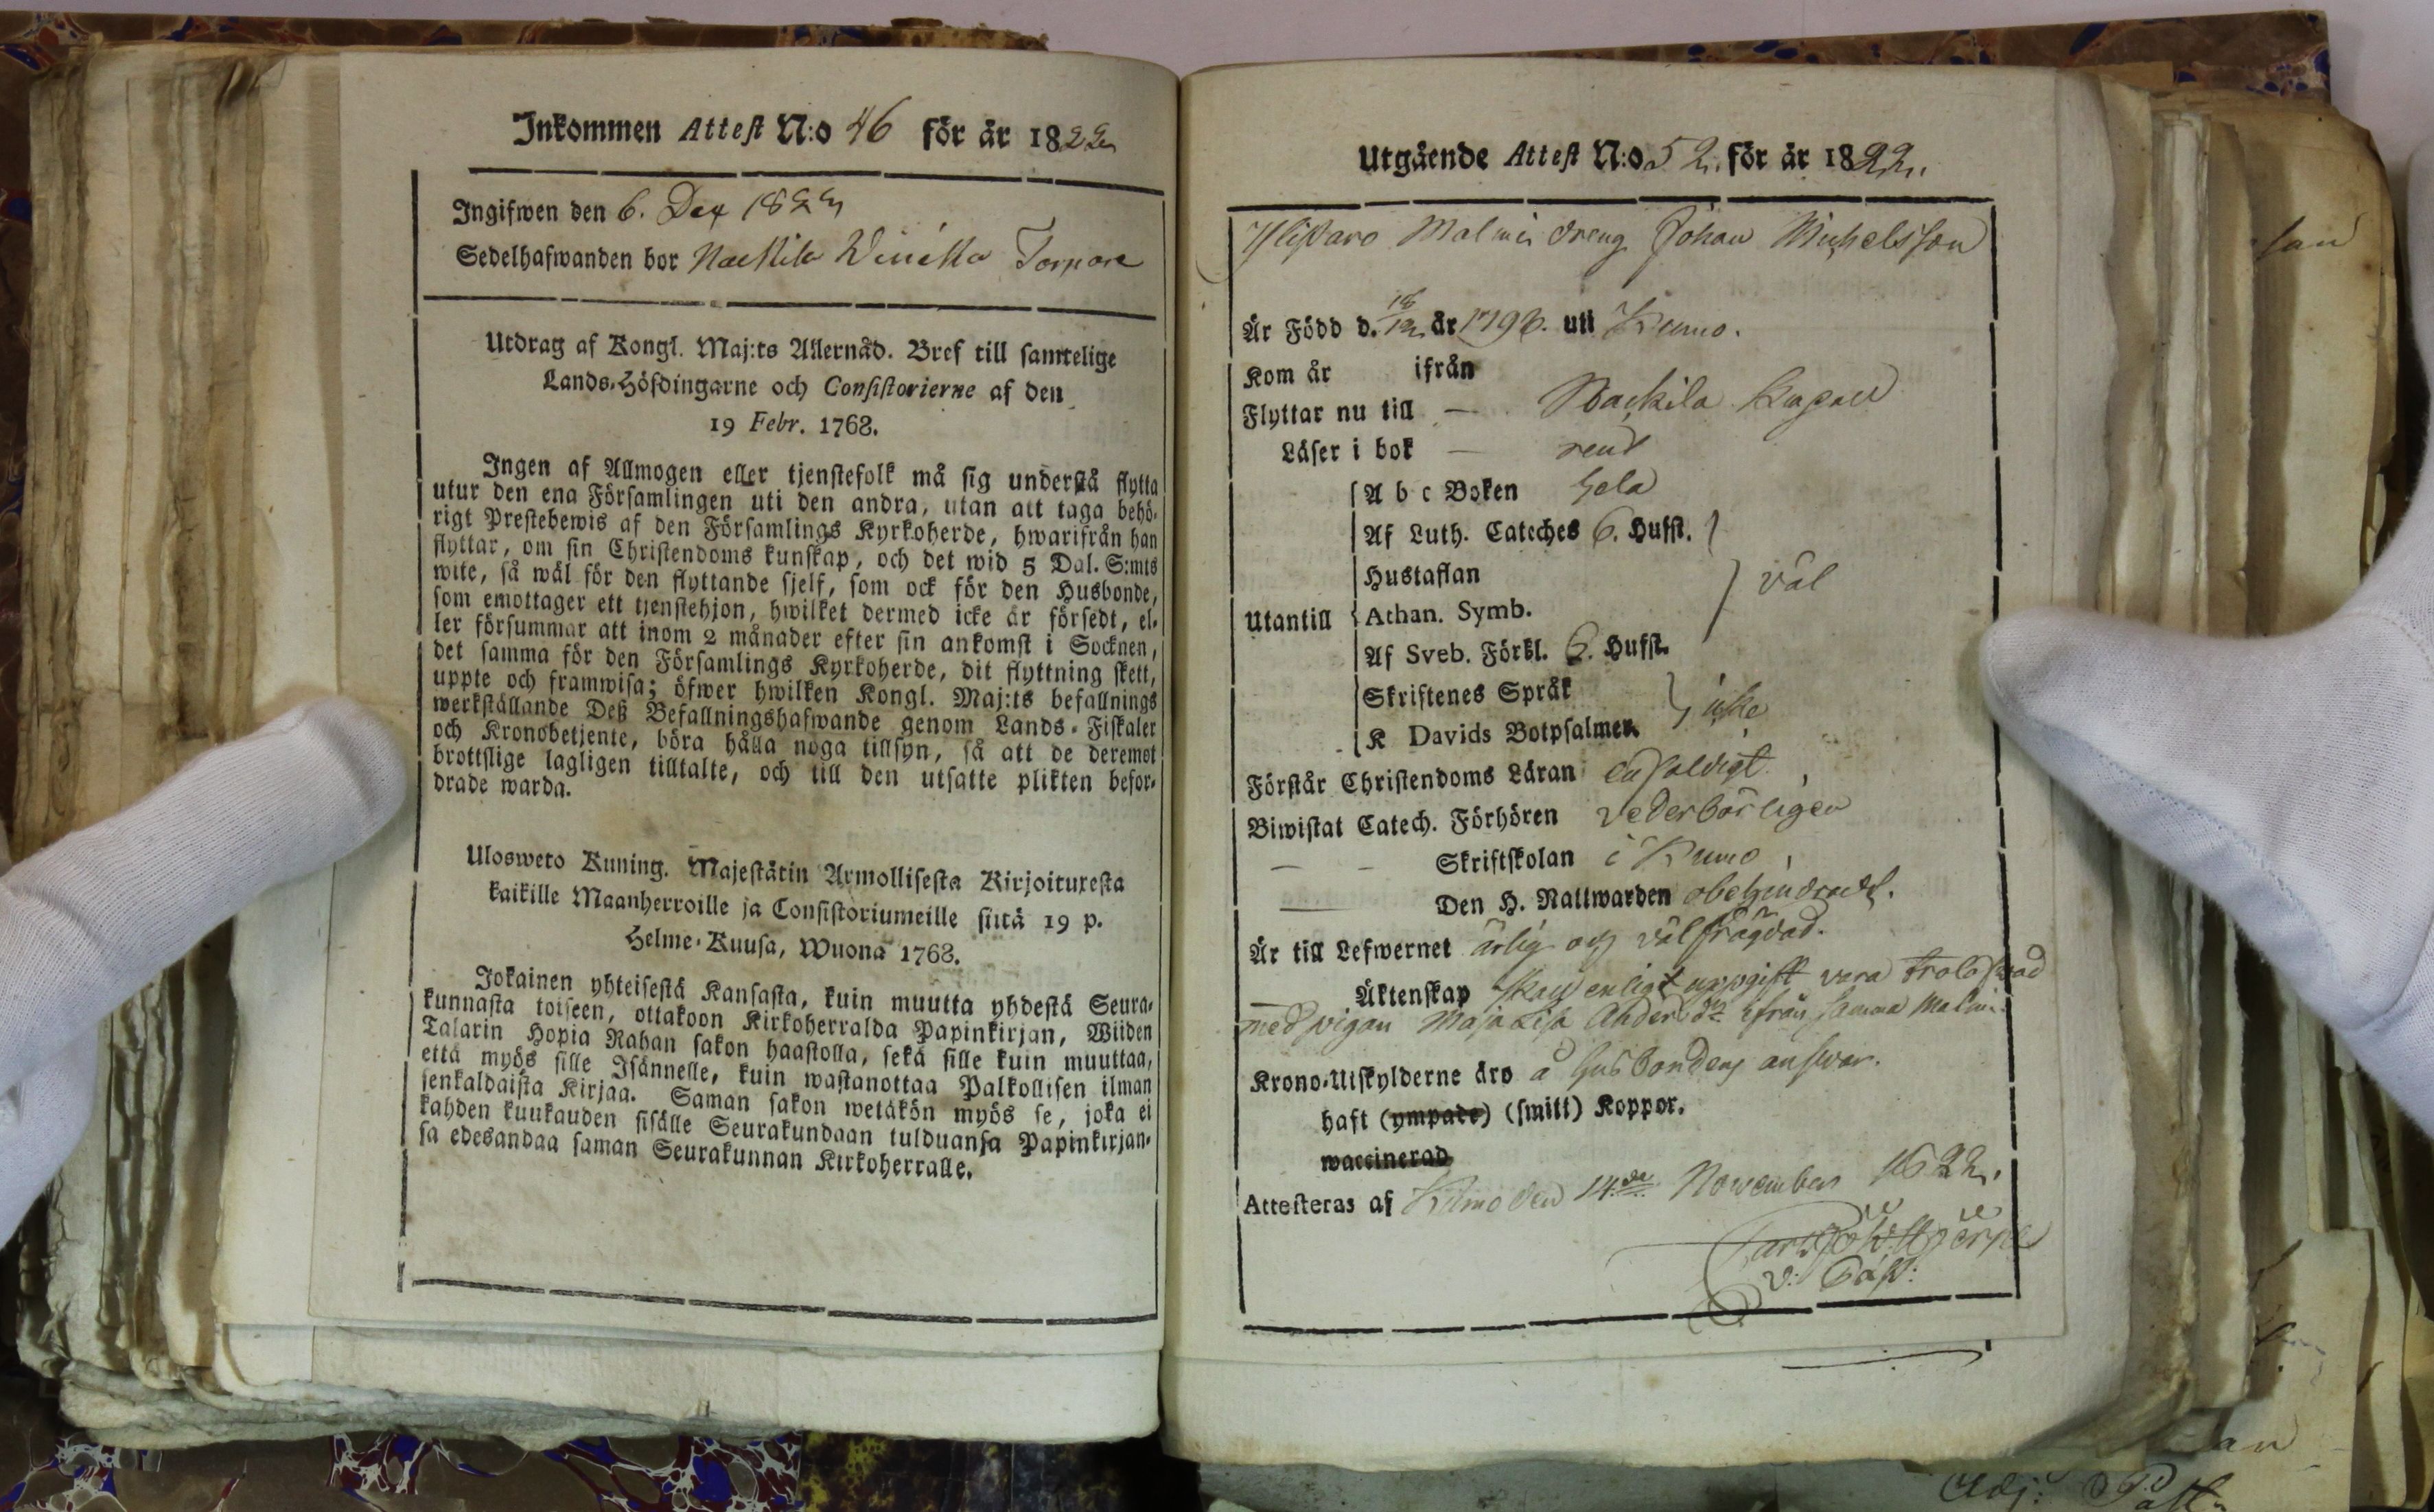 Inkommen Attest N:o 46 för år 1822
Ingifwen den 6. Dec 1822
Sedelhafwanden bor Nackila Torpare
Utdrag af Kongl. Maj:ts Allernåd. Bref till samtelige
Lands-Höfdingarne och Consistorierne af den
19 Febr. 1768.
Ingen af Allmogen eller tjenstefolk må sig understå flytta
utur den ena Församlingen uti den andra, utan att taga behö-
rigt Prestebewis af den Församlings Kyrkoherde, hwarifrån han
flyttar, om sin Christendoms kunskap, och det wid 5 Dal. S:mts
wite, så wäl för den flyttande sjelf, som ock för den Husbonde,
som emottager ett tjenstehjon, hwilket dermed icke är försedt, el-
ler försummar att inom 2 månader efter sin ankomst i Socknen,
det samma för den Församlings Kyrkoherde, dit flyttning skett,
uppte och framwisa; öfwer hwilken Kongl. Maj:ts befallnings
werkställande Deß Befallningshafwande genom Lands-Fiskaler
och Kronobetjente, böra hålla noga tillsyn, så att de deremot
brottslige lagligen tilltalte, och till den utsatte plikten befor-
drade warda.
Ulosweto Kuning. Majestätin Armollisesta Kirjoituxesta
kaikille Maanherroille ja Consistoriumeille siitä 19 p.
Helme-Kuusa, Wuona 1768.
Jokainen yhteisestä Kansasta, kuin muutta yhdestä Seura-
kunnasta toiseen, ottakoon Kirkoherralda Papinkirjan, Wiiden
Talarin Hopia Rahan sakon haastolla, sekä sille kuin muuttaa,
että myös sille Isännelle, kuin wastanottaa Palkollisen ilman
senkaldaista Kirjaa. Saman sakon wetäkön myös se, joka ei
kahden kuukauden sisälle Seurakundaan tulduansa Papinkirjan-
sa edesandaa saman Seurakunnan Kirkoherralle.
Utgående Attest N:o 52. för år 1822.
Ylistaro Malmi dreng Johan Michelsson
Är Född d. 18/12 år 1796. uti Kumo.
Kom år ifrån
Flyttar nu till — Nackila Kapell
Läser i bok — rent
A b c Boken hela
Af Luth. Cateches 6. Hufst.
Hustaflan
väl
Utantill Athan. Symb.
Af Sveb. Förkl. 6. Hufst.
Skriftenes Språk
icke
K Davids Botpsalmer
Förstår Christendoms Läran enfaldigt.
Biwistat Catech. Förhören vederbörligen
— — Skriftskolan i Kumo,
— Den H. Nattwarden obehindradt.
Är till Lefwernet ärlig och välfrägdad.
— Äktenskap skall enligt uppgift vara trolofvad
med pigan Maja Lisa Anders dr ifrån samma Malmi.
Krono-Utskylderne äro å husbondens answar.
haft (ympade) (smitt) Koppor.
waccinerad
Attesteras af Kumo den 14:de November 1822.
v: Past:
Adj: Past: